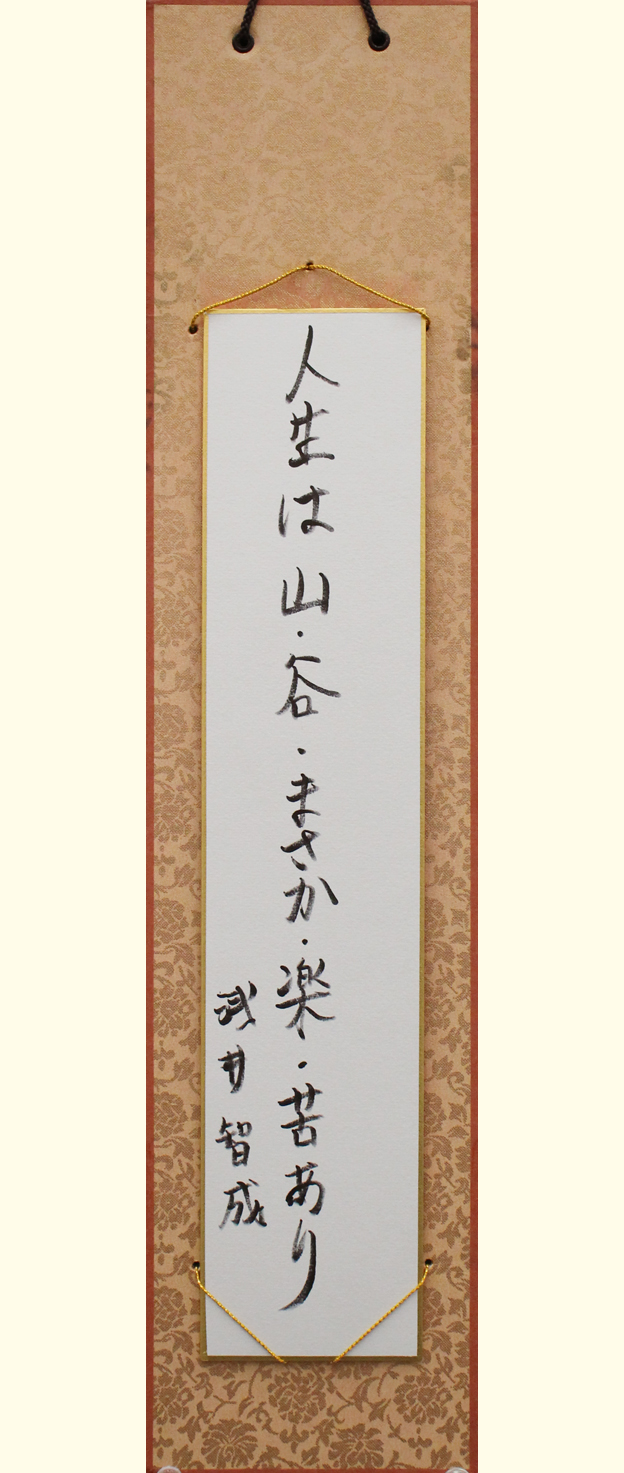 人生は山・谷・まさか・楽・苦あり
武井智成